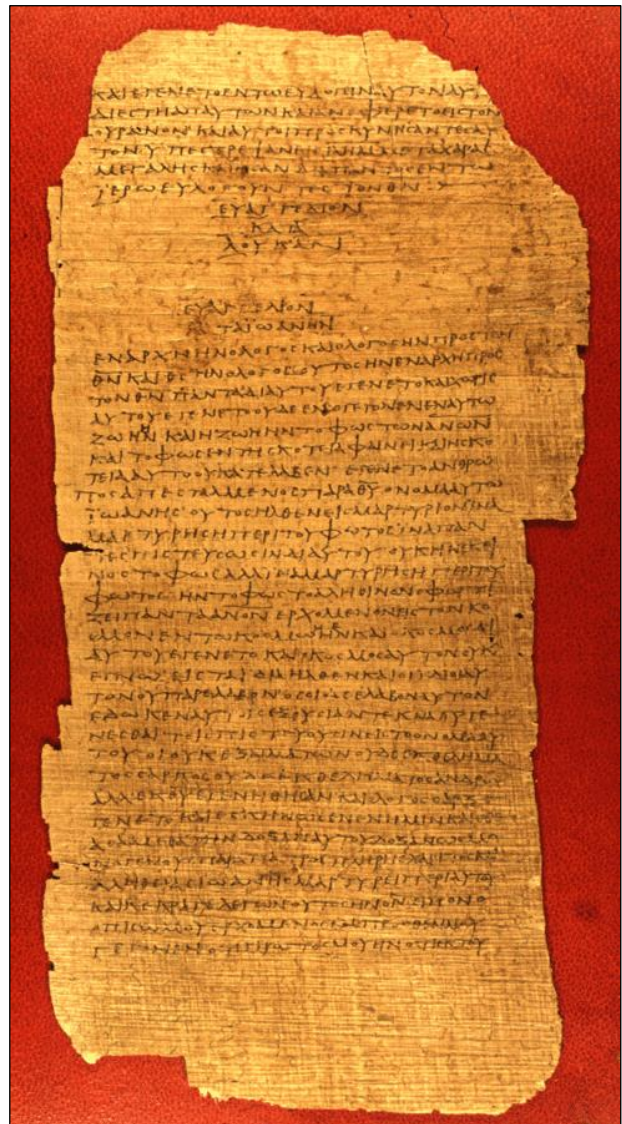 ΚΑΙΕΓΕΝΕΤΟΕΝΤΩΕΥΛΟΓΕΙΝΑΥΤΟΝΑΥ
ΔΙΕϹΤΗΑΠΑΥΤΩΝΚΑΙΑΝΕΦΕΡΕΤΟΕΙϹΤΟΝ
ΟΥΡΑΝΟΝ ΚΑΙΑΥΤΟΙΠΡΟϹΚΥΝΗϹΑΝΤΕϹΑΥ
ΤΟΝ ΥΠΕϹΤΡΕΨΑΝΕΙϹΙΛΗΜΜΕΤΑΧΑΡΑϹ
ΜΕΓΑΛΗϹΚΑΙΗϹΑΝΔΙΑΠΑΝΤΟϹΕΝΤΩ
ΙΕΡΩΕΥΛΟΓΟΥΝΤΕϹΤΟΝΘΝ
ΕΥΑΓΓΕΛΙΟΝ
ΚΑΤΑ
ΛΟΥΚΑΝ
ΕΥΑΓΓΕΛΙΟΝ
ΚΑΤΑΙΩΑΝΗΝ
ΕΝΑΡΧΗΗΝΟΛΟΓΟϹΚΑΙΟΛΟΓΟϹΗΝΠΡΟϹΤΟΝ
ΘΝ ΚΑΙΘϹΗΝΟΛΟΓΟϹΟΥΤΟϹΗΝΕΝΑΡΧΗΠΡΟϹ
ΤΟΝΘΝ ΠΑΝΤΑΔΙΑΥΤΟΥΕΓΕΝΕΤΟΚΑΙΧΩΡΙϹ
ΑΥΤΟΥΕΓΕΝΕΤΟΟΥΔΕΕΝΟΓΕΓΟΝΕΝΕΝΑΥΤΩ
ΖΩΗΗΝ ΚΑΙΗΖΩΗΗΝΤΟΦΩϹΤΩΝΑΝΩΝ
ΚΑΙΤΟΦΩϹΕΝΤΗϹΚΟΤΕΙΑΦΑΙΝΕΙΚΑΙΗϹΚΟ
ΤΕΙΑΑΥΤΟΟΥΚΑΤΕΛΑΒΕΝ ΕΓΕΝΕΤΟΑΝΘΡΩ
ΠΟϹΑΠΕϹΤΑΛΜΕΝΟϹΠΑΡΑΘΥΟΝΟΜΑΑΥΤΩ
ΙΩΑΝΗϹ ΟΥΤΟϹΗΛΘΕΝΕΙϹΜΑΡΤΥΡΙΑΝΙΝΑ
ΜΑΡΤΥΡΗϹΗΠΕΡΙΤΟΥΦΩΤΟϹΙΝΑΠΑΝ
ΤΕϹΠΙϹΤΕΥϹΩϹΙΝΔΙΑΥΤΟΥ ΟΥΚΗΝΕΚΕΙ
ΝΟϹΤΟΦΩϹΑΛΛΙΝΑΜΑΡΤΥΡΗϹΗΠΕΡΙΤΟΥ
ΦΩΤΟϹΗΝΤΟΦΩϹΤΟΑΛΗΘΙΝΟΝΟΦΩΤΙ
ΖΕΙΠΑΝΤΑΑΝΟΝΕΡΧΟΜΕΝΟΝΕΙϹΤΟΝΚΟ
ϹΜΟΝΕΝΤΩΚΟϹΜΩΗΝΚΑΙΟΚΟϹΜΟϹΔΙ
ΑΥΤΟΥΕΓΕΝΕΤΟΚΑΙΟΚΟϹΜΟϹΑΥΤΟΝΟΥΚ
ΕΓΝΩ ΕΙϹΤΑΙΔΙΑΗΛΘΕΝΚΑΙΟΙΙΔΙΟΙΑΥ
ΤΟΝΟΥΠΑΡΕΛΑΒΟΝΟϹΟΙΔΕΕΛΑΒΟΝΑΥΤΟΝ
ΕΔΩΚΕΝΑΥΤΟΙϹΕΞΟΥϹΙΑΝΤΕΚΝΑΘΥΓΕ
ΝΕϹΘΑΙΤΟΙϹΠΙϹΤΕΥΟΥϹΙΝΕΙϹΤΟΟΝΟΜΑΑΥ
ΤΟΥΟΙΟΥΚΕΞΑΙΜΑΤΩΝΟΥΔΕΕΚΘΕΛΗΜΑ
ΤΟϹϹΑΡΚΟϹΟΥΔΕΕΚΘΕΛΗΜΑΤΟϹΑΝΔΡΟϹ
ΑΛΛΕΚΘΥΕΓΕΝΗΘΗϹΑΝΚΑΙΟΛΟΓΟϹϹΑΡΞΕ
ΓΕΝΕΤΟΚΑΙΕϹΚΗΝΩϹΕΝΕΝΗΜΙΝΚΑΙΕ
ΘΕΑϹΑΜΕΘΑΤΗΝΔΟΞΑΝΑΥΤΟΥΔΟΞΑΝΩϹΜΟ
ΝΟΓΕΝΟΥϹΠΑΡΑΠΑΤΡΟϹΠΛΗΡΗϹΧΑΡΙΤΟϹΚΑΙ
ΑΛΗΘΕΙΑϹΙΩΑΝΗϹΜΑΡΤΥΡΕΙΠΕΡΙΑΥΤΟΥ
ΚΑΙΚΕΚΡΑΓΕΛΕΓΩΝΟΥΤΟϹΗΝΟΝΕΙΠΟΝΟ
ΟΠΙϹΩΜΟΥΕΡΧΟΜΕΝΟϹΕΜΠΡΟϹΘΕΝΜΟΥ
ΓΕΓΟΝΕΝΟΤΙΠΡΩΤΟϹΜΟΥΗΝΟΤΙΕΚΤΟΥ